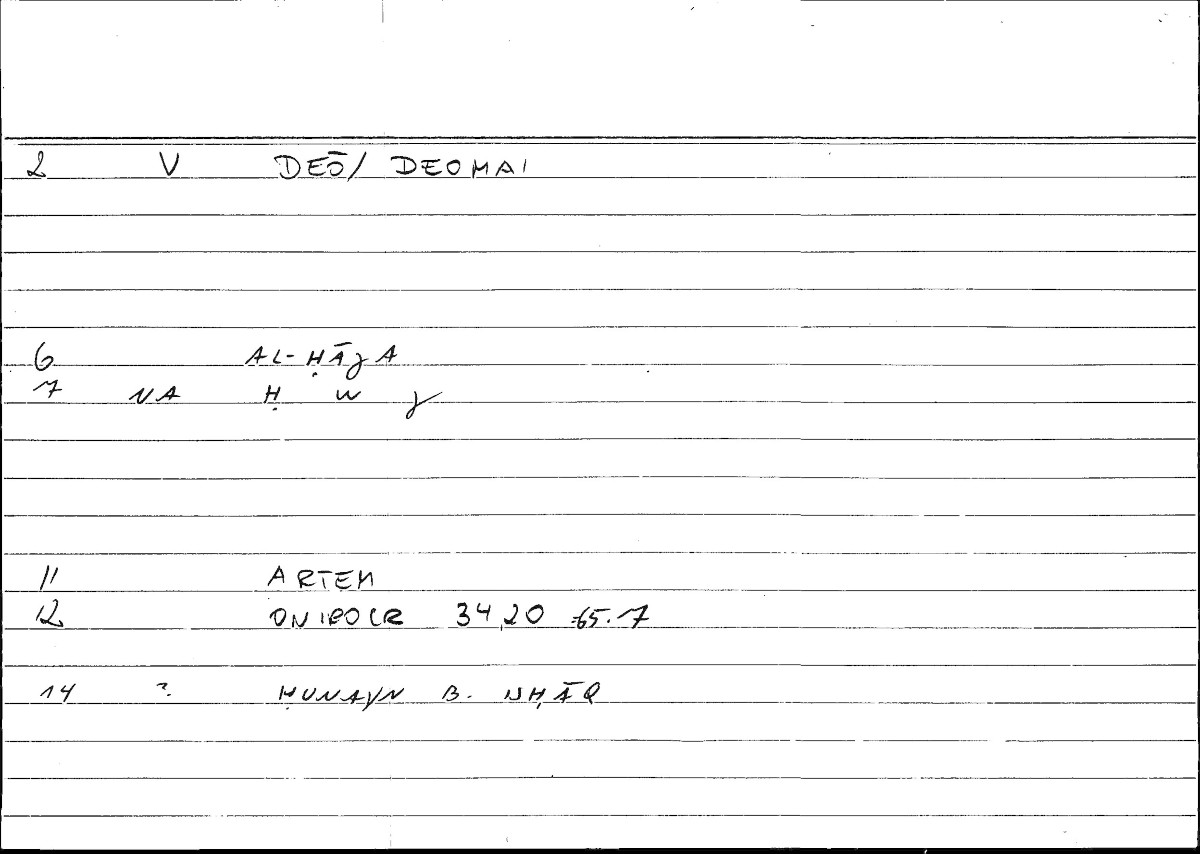 2 V DEŌ/ DEOMAI
6 AL-ḤĀǧA
7 NA Ḥ W ǧ
11 ARTEM
12 ONIROCR 34,20 =65.7
14 ? ḤUNAYN B. ISḤĀQ